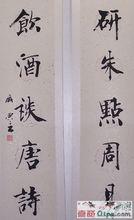 研朱點周易
飲酒談唐詩